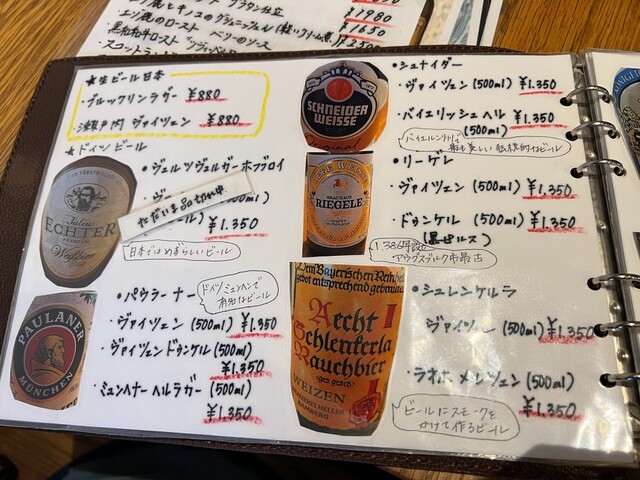 ¥1980
エゾ鹿とキノコのグラニャップル(軽いクリーム煮)
¥1650
エゾ鹿のロースト ベリーのソース
黒毛和牛ロースト
★生ビール日本
・ブルックリンラガー ¥880
・瀬戸内 ヴァイツェン ¥880
★ドイツビール
・ヴュルツヴュルガーホフブロイ
ただいま品切れ中
¥1.350
日本ではめずらしいビール
Julius
ECHTER
Weißbier
・パウラーナー
ドイツミュンヘンで
有名なビール
・ヴァイツェン (500ml) ¥1.350
・ヴァイツェンドゥンケル (500ml)
¥1.350
・ミュンヘナーヘルラガー (500ml)
¥1.350
PAULANER
MÜNCHEN
SCHNEIDER
WEISSE
Original
・シュナイダー
・ヴァイツェン (500ml) ¥1.350
・バイエリッシュヘル ¥1.350
(500ml)
BRAUHAUS
RIEGELE
・リーゲレ
・ヴァイツェン (500ml) ¥1.350
・ドゥンケル (500ml) ¥1.350
(黒ビルス)
1386年設立
アウグスブルク市最古
Dem Bayerischen Reinheits
gebot entsprechend gebraut
Aecht
Schlenkerla
Rauchbier
WEIZEN
BRAUEREI HELLER
BAMBERG
・シュレンケルラ
ヴァイツェン (500ml) ¥1.350
・ラオホ メルツェン (500ml)
¥1.350
ビールにスモークを
かけて作るビール